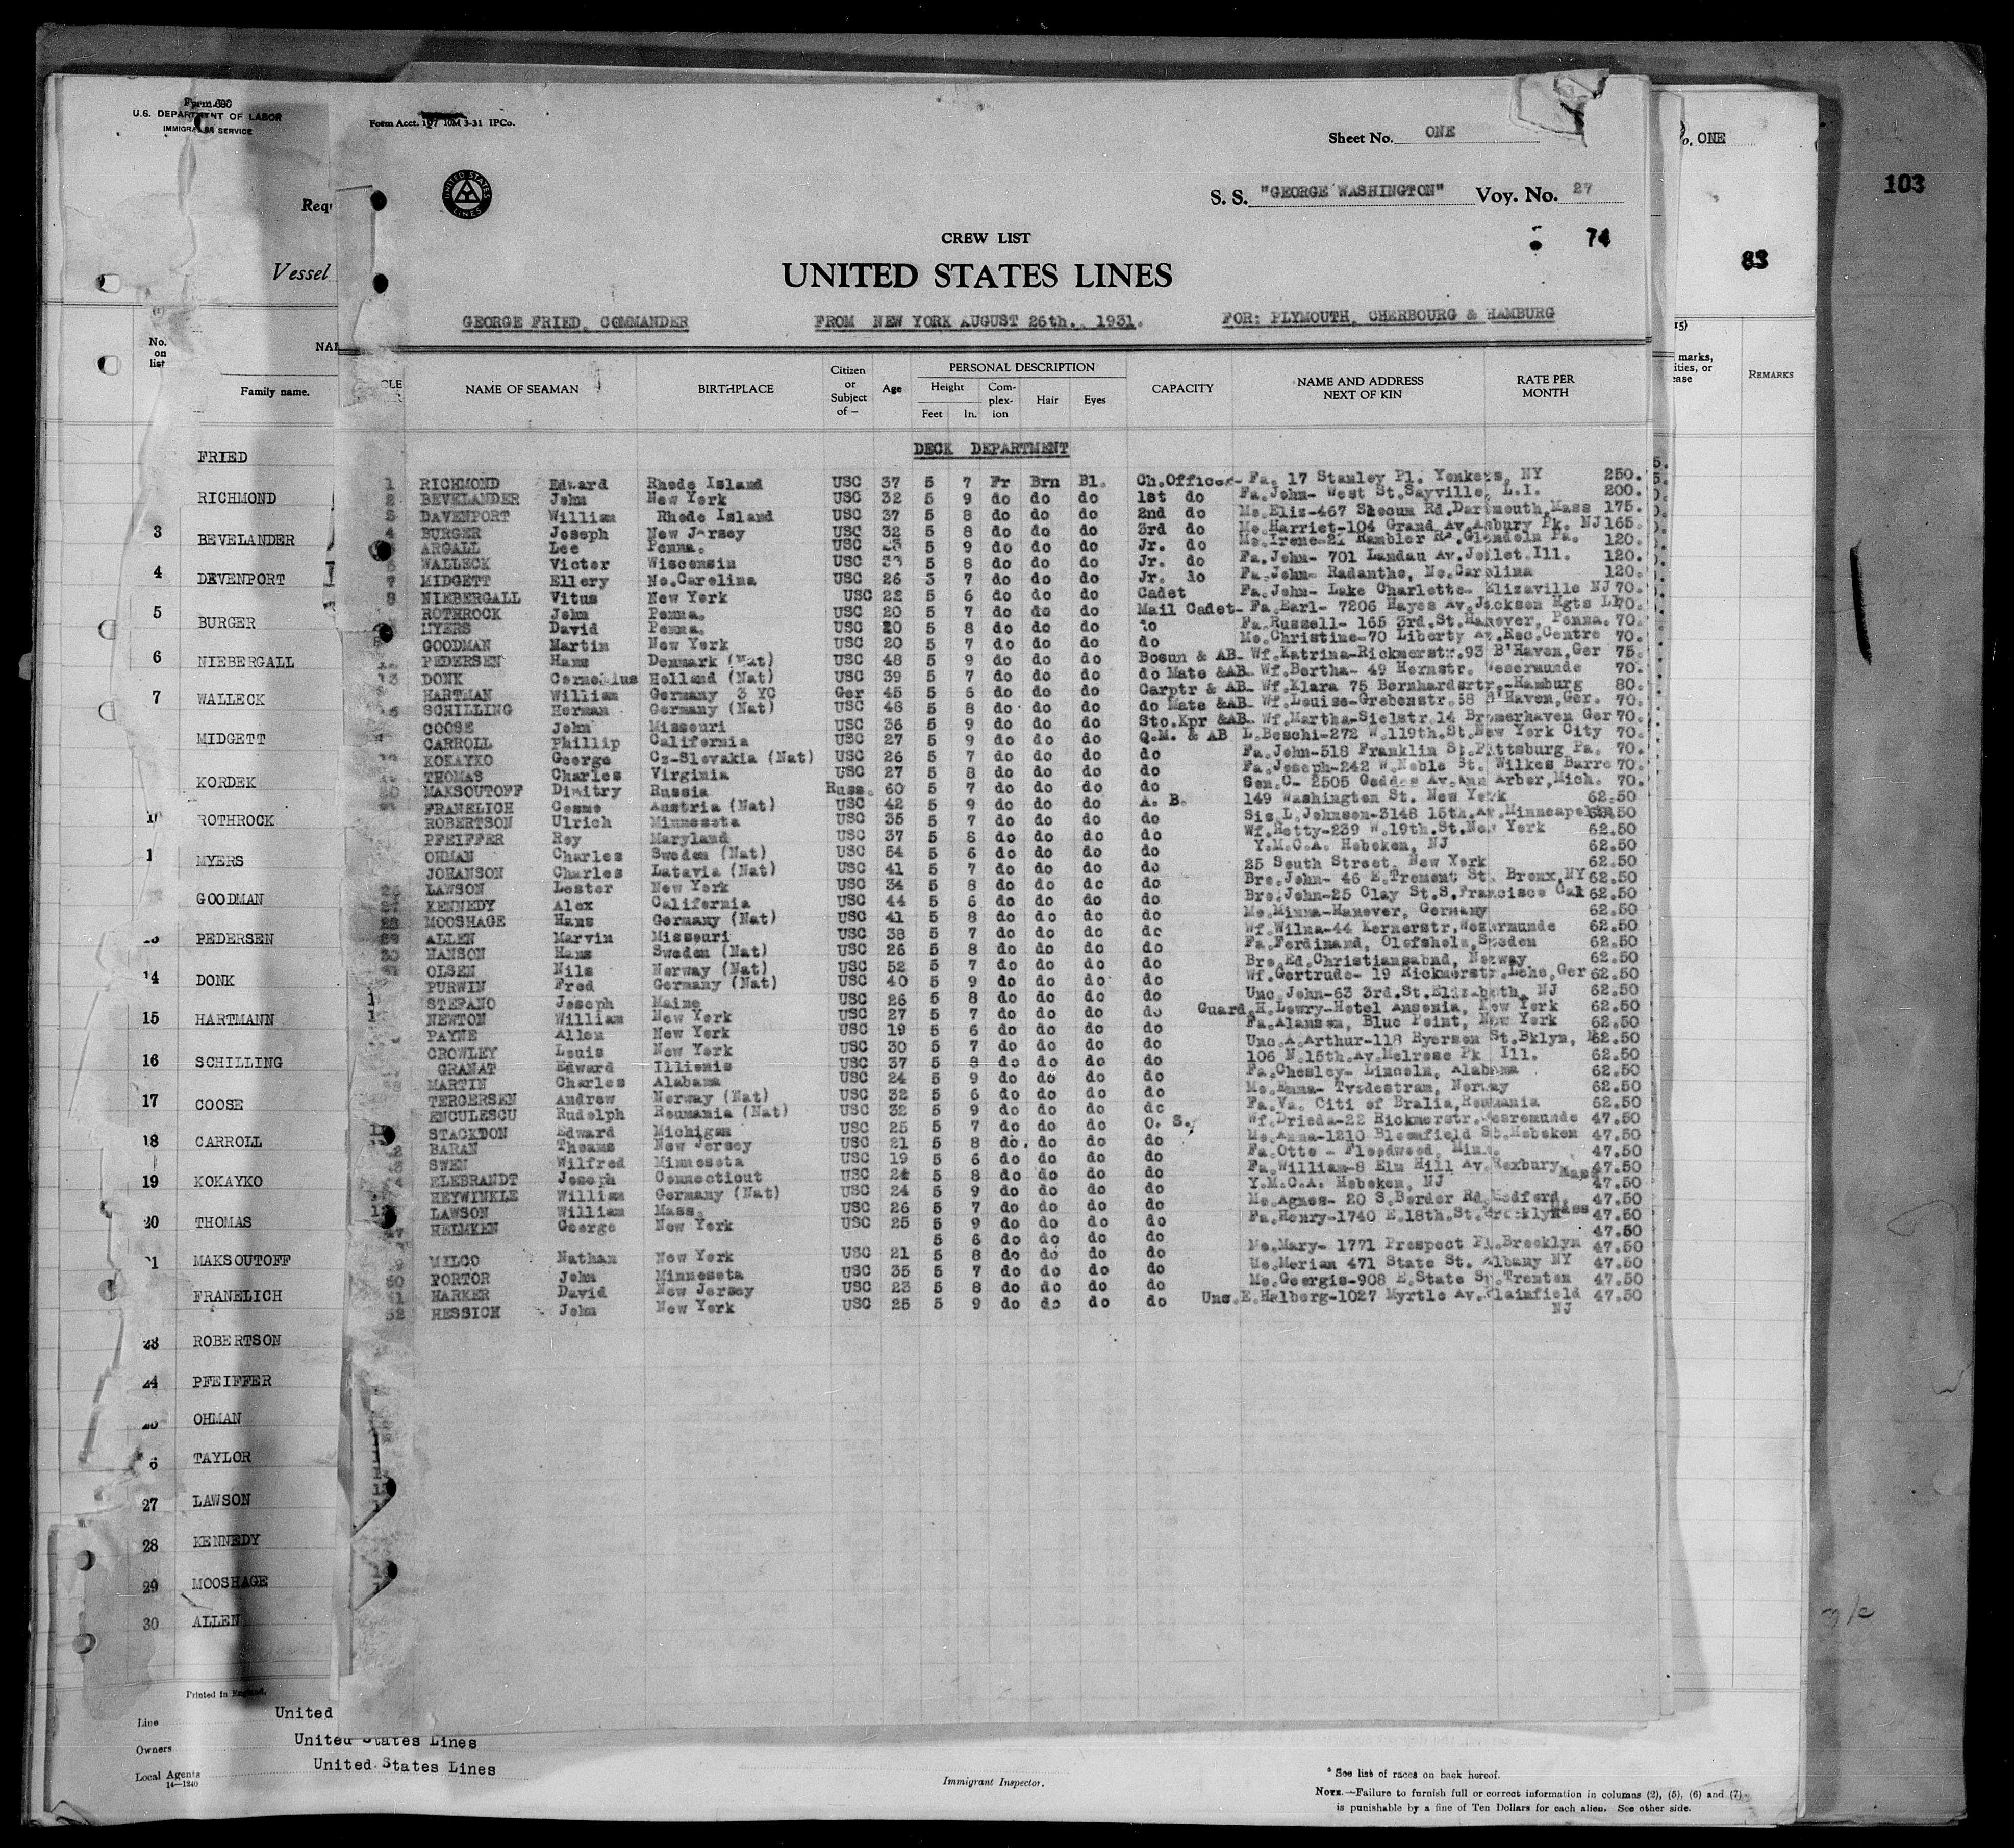 Form 680
U.S. DEPARTMENT OF LABOR
IMMIGRATION SERVICE
Form Acct. 107 10M 3-31 IPCo.
Sheet No. ONE
No. ONE
103
UNITED STATES LINES
S. S. "GEORGE WASHINGTON" Voy. No. 27
Vessel
CREW LIST
74
83
UNITED STATES LINES
GEORGE FRIED, COMMANDER FROM NEW YORK AUGUST 26th., 1931. FOR: PLYMOUTH, CHERBOURG & HAMBURG
NAME OF SEAMAN BIRTHPLACE Citizen or Subject of — Age PERSONAL DESCRIPTION Height Feet In. Complexion Hair Eyes CAPACITY NAME AND ADDRESS NEXT OF KIN RATE PER MONTH
DECK DEPARTMENT
1 RICHMOND Edward Rhode Island USC 37 5 7 Fr Brn Bl. Ch.Officer- Fa. 17 Stanley Pl. Yonkers, NY 250.
2 BEVELANDER John New York USC 32 5 9 do do do 1st do Fa.John- West St.Sayville, L.I. 200.
3 DAVENPORT William Rhode Island USC 37 5 8 do do do 2nd do Mo.Eliz-467 Slocum Rd.Dartmouth,Mass 175.
4 BURGER Joseph New Jersey USC 32 5 8 do do do 3rd do Mo.Harriet-104 Grand Av.Asbury Pk. NJ 165.
ARGALL Lee Penna. USC 5 9 do do do Jr. do Mo.Irene-21 Rambler Rd.Glendoln Pa. 120.
6 WALLECK Victor Wisconsin USC 5 8 do do do Jr. do Fa.John- 701 Landau Av.Joliet.Ill. 120.
7 MIDGETT Ellery No.Carolina USC 26 5 7 do do do Jr. do Fa.John- Radanthe, No.Carolina 120.
8 NIEBERGALL Vitus New York USC 22 5 6 do do do Cadet Fa.John- Lake Charlotte- Elizaville NJ 70.
ROTHROCK John Penna. USC 20 5 7 do do do Mail Cadet- Fa.Earl- 7206 Hayes Av.Jackson Hgts LI 70.
MYERS David Penna. USC 20 5 8 do do do do Fa.Russell- 165 3rd.St.Hanover, Penna. 70.
GOODMAN Martin New York USC 20 5 7 do do do do Mo.Christine-70 Liberty Av.Roc.Centre 70.
12 PEDERSEN Hans Denmark (Nat) USC 48 5 9 do do do Bosun & AB- Wf.Katrina-Rickmerstr.93 B'Haven,Ger 75.
13 DONK Cornelius Holland (Nat) USC 39 5 7 do do do do Mate &AB- Wf.Bertha- 49 Hornstr. Wesermunde 70.
HARTMAN William Germany 3 YC Ger 45 5 6 do do do Carptr & AB- Wf.Klara 75 Bernhardsrtr.-Hamburg 80.
SCHILLING Herman Germany (Nat) USC 48 5 8 do do do do Mate &AB- Wf.Louise-Grebenstr.58 B'Haven,Ger. 70.
COOSE John Missouri USC 36 5 9 do do do Sto.Kpr &AB- Wf.Martha-Sielstr.14 Bremerhaven Ger 70.
CARROLL Phillip California USC 27 5 9 do do do Q.M. & AB L.Beschi-272 W.119th.St.New York City 70.
KOKAYKO George Cz-Slovakia (Nat) USC 26 5 7 do do do do Fa.John-518 Franklin St.Pittsburg Pa. 70.
THOMAS Charles Virginia USC 27 5 8 do do do do Fa.Joseph-242 W.Noble St. Wilkes Barre 70.
20 MAKSOUTOFF Dimitry Russia Russ. 60 5 7 do do do do Gen.C- 2505 Geddes Av.Ann Arber,Mich. 70.
FRANELICH Cosmo Austria (Nat) USC 42 5 9 do do do A. B. 149 Washington St. New York 62.50
ROBERTSON Ulrich Minnesota USC 35 5 7 do do do do Sis.L.Johnson-3148 15th.Av.Minneapolis 62.50
PFEIFFER Roy Maryland USC 37 5 8 do do do do Wf.Hetty-239 W.19th.St.New York 62.50
OHMAN Charles Sweden (Nat) USC 54 5 6 do do do do Y.M.C.A. Hoboken, NJ 62.50
JOHANSON Charles Latavia (Nat) USC 41 5 7 do do do do 25 South Street, New York 62.50
LAWSON Lester New York USC 34 5 8 do do do do Bro.John- 46 E.Tremont St. Bronx,NY 62.50
KENNEDY Alex California USC 44 5 6 do do do do Bro.John-25 Clay St.S.Francisco Cal 62.50
28 MOOSHAGE Hans Germany (Nat) USC 41 5 8 do do do do Mo.Minna-Hanover, Germany 62.50
29 ALLEN Marvin Missouri USC 38 5 7 do do do do Wf.Wilna-44 Kernerstr,Wesermunde 62.50
30 HANSON Hans Sweden (Nat) USC 26 5 8 do do do do Fa.Ferdinand, Olofsholm,Sweden 62.50
OLSEN Nils Norway (Nat) USC 52 5 7 do do do do Bro.Ed.Christiansabnd, Norway 62.50
PURWIN Fred Germany (Nat) USC 40 5 9 do do do do Wf.Gertrude- 19 Rickmerstr.Lehe,Ger 62.50
STEFANO Joseph Maine USC 26 5 8 do do do do Unc.John-63 3rd.St.Elizabeth, NJ 62.50
NEWTON William New York USC 27 5 7 do do do do Guard.H.Lowry-Hotel Ansonia, New York 62.50
PAYNE Allen New York USC 19 5 6 do do do do Fa.Alanson, Blue Point, New York 62.50
CROWLEY Louis New York USC 30 5 7 do do do do Unc.A.Arthur-118 Ryerson St.Bklyn, 62.50
GRANAT Edward Illionis USC 37 5 8 do do do do 106 N.15th.Av.Melrose Pk Ill. 62.50
38 MARTIN Charles Alabama USC 24 5 9 do do do do Fa.Chesley- Lincoln, Alabama 62.50
TERGERSEN Andrew Norway (Nat) USC 32 5 6 do do do do Mo.Emma- Tvedestran, Norway 62.50
ENCULESCU Rudolph Roumania (Nat) USC 32 5 9 do do do do Fa.Va. Citi of Bralia,Roumania 62.50
STACKDON Edward Michigan USC 25 5 7 do do do O. S. Wf.Drieda-22 Rickmerstr.Wesremunde 47.50
BARAN Thoams New Jersey USC 21 5 8 do. do do do Mo.Anna-1210 Bloomfield St.Hoboken 47.50
SWEN Wilfred Minnesota USC 19 5 6 do do do do Fa.Otto - Floodwood, Minn. 47.50
ELEBRANDT Joseph Connecticut USC 24 5 8 do do do do Fa.William-8 Elm Hill Av.Roxbury Mass 47.50
HEYWINKLE William Germany (Nat) USC 24 5 9 do do do do Y.M.C.A. Hoboken, NJ 47.50
LAWSON William Mass. USC 26 5 7 do do do do Mo.Agnes- 20 S.Border Rd.Medford, Mass 47.50
47 HELMKEN George New York USC 25 5 9 do do do do Fa.Henry-1740 E.18th.St.Brooklyn 47.50
5 6 do do do do 47.50
MILCO Nathan New York USC 21 5 8 do do do do Mo.Mary- 1771 Prospect Pl.Brooklyn 47.50
50 PORTOR John Minnesota USC 35 5 7 do do do do Mo.Merian 471 State St. Albany NY 47.50
HARKER David New Jersey USC 23 5 8 do do do do Mo.Georgis-908 E.State St.Trenton 47.50
52 HESSICK John New York USC 25 5 9 do do do do Unc.E.Halberg-1027 Myrtle Av.Plainfield NJ 47.50
No. on list
Family name.
FRIED
RICHMOND
3 BEVELANDER
4 DEVENPORT
5 BURGER
6 NIEBERGALL
7 WALLECK
MIDGETT
KORDEK
ROTHROCK
MYERS
GOODMAN
PEDERSEN
14 DONK
15 HARTMANN
16 SCHILLING
17 COOSE
18 CARROLL
19 KOKAYKO
20 THOMAS
MAKSOUTOFF
FRANELICH
23 ROBERTSON
24 PFEIFFER
OHMAN
6 TAYLOR
27 LAWSON
28 KENNEDY
29 MOOSHAGE
30 ALLEN
marks,
REMARKS
Printed in England.
Line United
Owners United States Lines
Local Agents United States Lines
14—1240
Immigrant Inspector.
* See list of races on back hereof.
NOTE.—Failure to furnish full or correct information in columns (2), (5), (6) and (7)
is punishable by a fine of Ten Dollars for each alien. See other side.